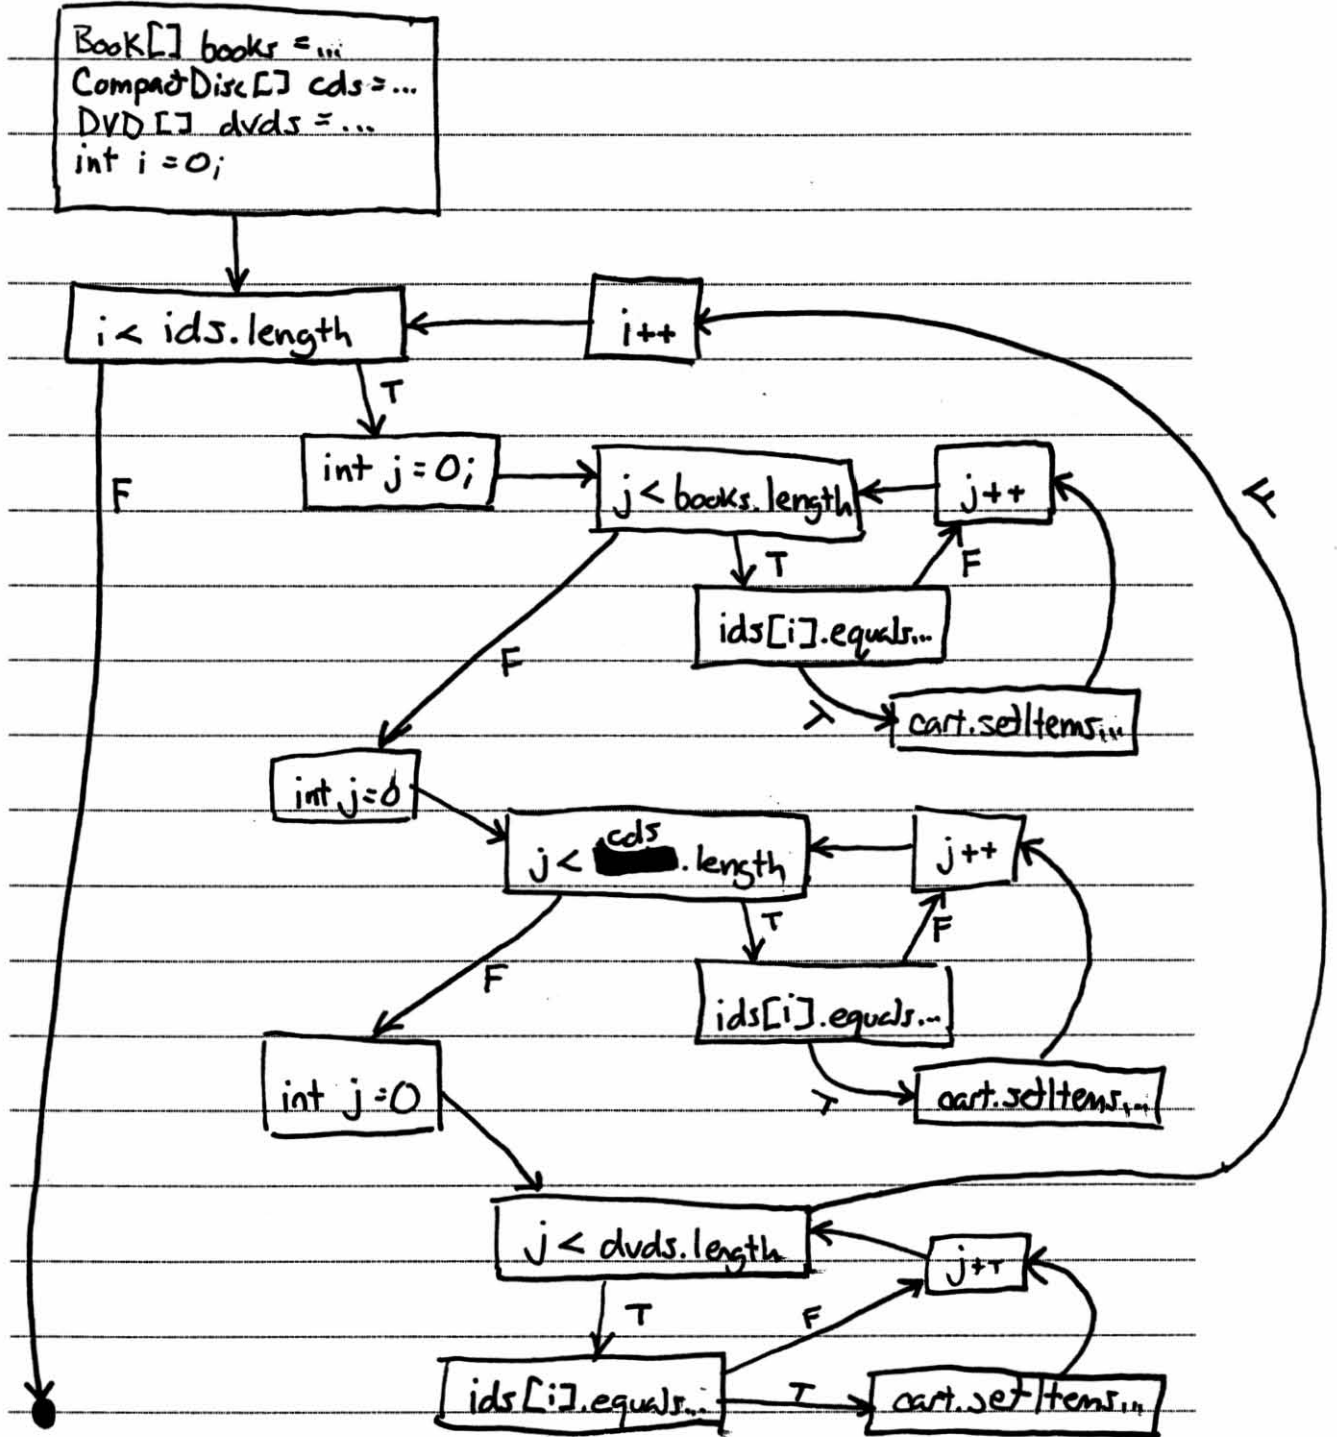 Book[] books = ...
CompactDisc[] cds = ...
DVD [] dvds = ...
int i = 0;
i < ids.length
i++
T
F
int j = 0;
j < books.length
j++
F
T
F
ids[i].equals...
F
T
cart.setItems...
int j=0
cds
j < .length
j++
T
F
F
ids[i].equals...
T
cart.setItems...
int j=0
j < dvds.length
j++
T
F
ids[i].equals...
T
cart.setItems...